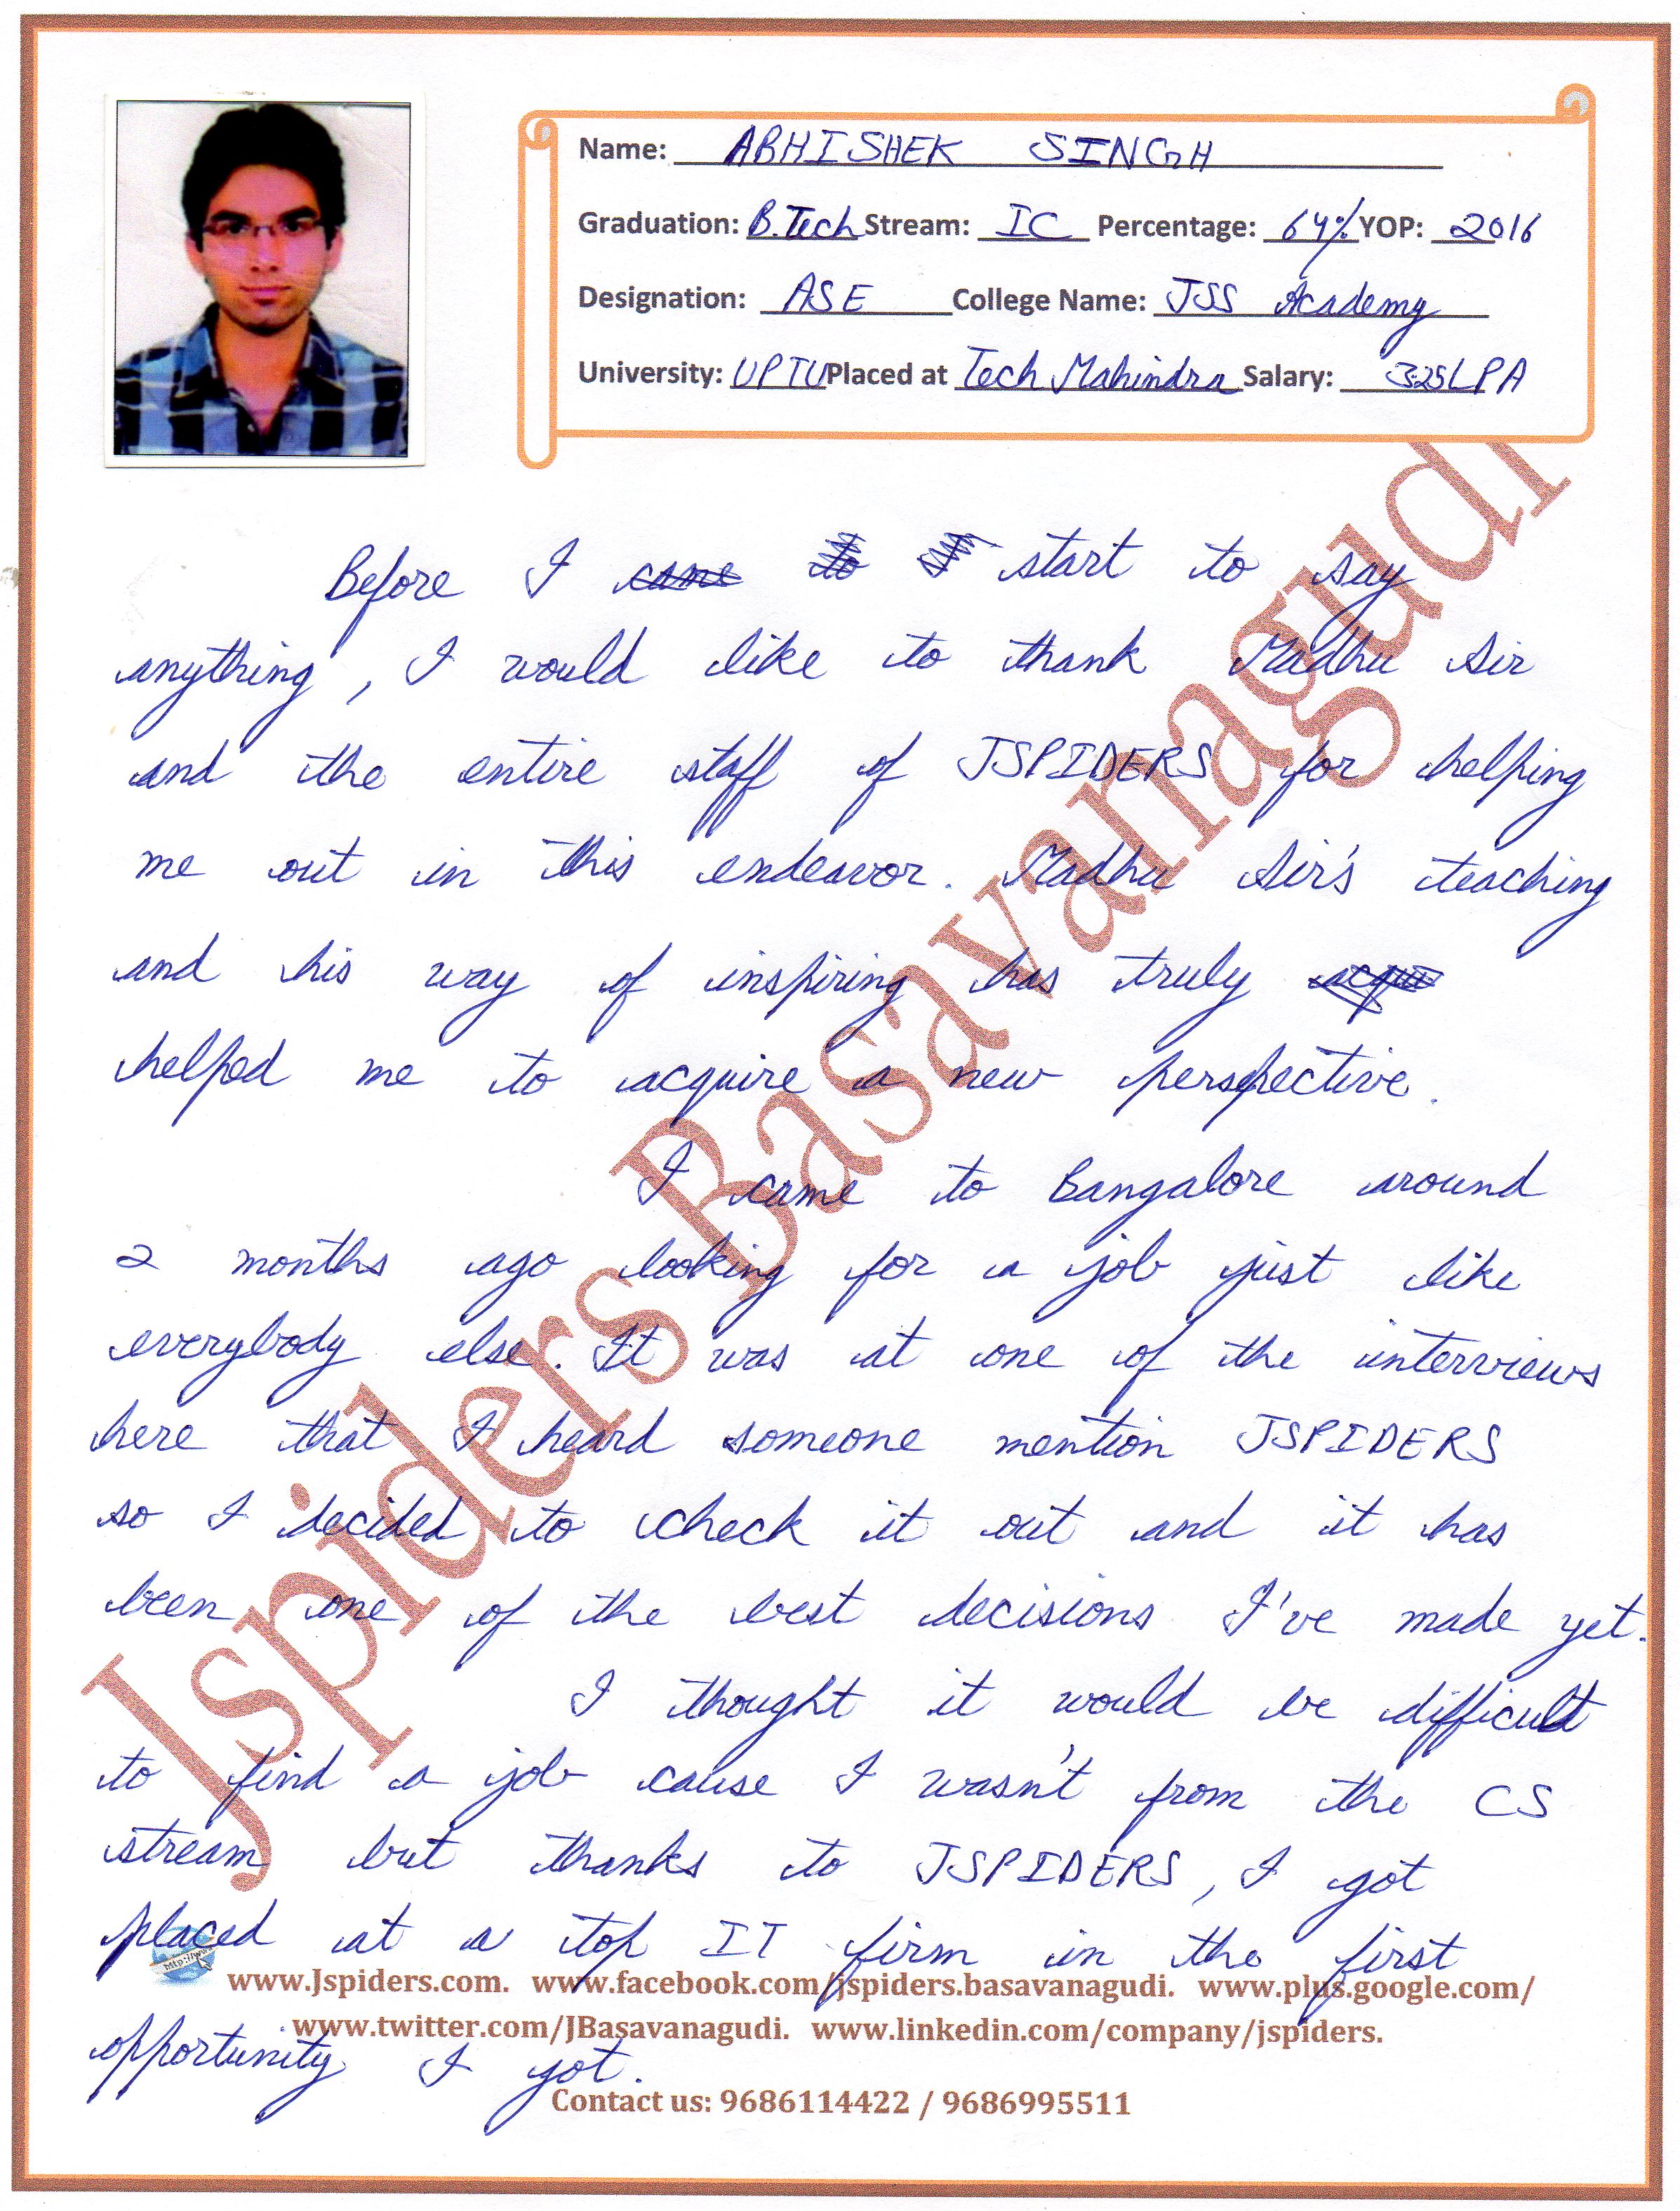 Name: ABHISHEK SINGH
Graduation: B.Tech Stream: IC Percentage: 64% YOP: 2016
Designation: ASE College Name: JSS Academy
University: UPTU Placed at Tech Mahindra Salary: 3.25LPA
Jspiders Basavanagudi
Before I came to start to say
anything, I would like to thank Madhu Sir
and the entire staff of JSPIDERS for helping
me out in this endeavor. Madhu Sir's teaching
and his way of inspiring has truly acqui
helped me to acquire a new perspective.
I came to Bangalore around
2 months ago looking for a job just like
everybody else. It was at one of the interviews
here that I heard someone mention JSPIDERS
so I decided to check it out and it has
been one of the best decisions I've made yet.
I thought it would be difficult
to find a job cause I wasn't from the CS
stream but thanks to JSPIDERS, I got
placed at a top IT firm in the first
http://ww
www.Jspiders.com. www.facebook.com/jspiders.basavanagudi. www.plus.google.com/
www.twitter.com/JBasavanagudi. www.linkedin.com/company/jspiders.
opportunity I got.
Contact us: 9686114422 / 9686995511